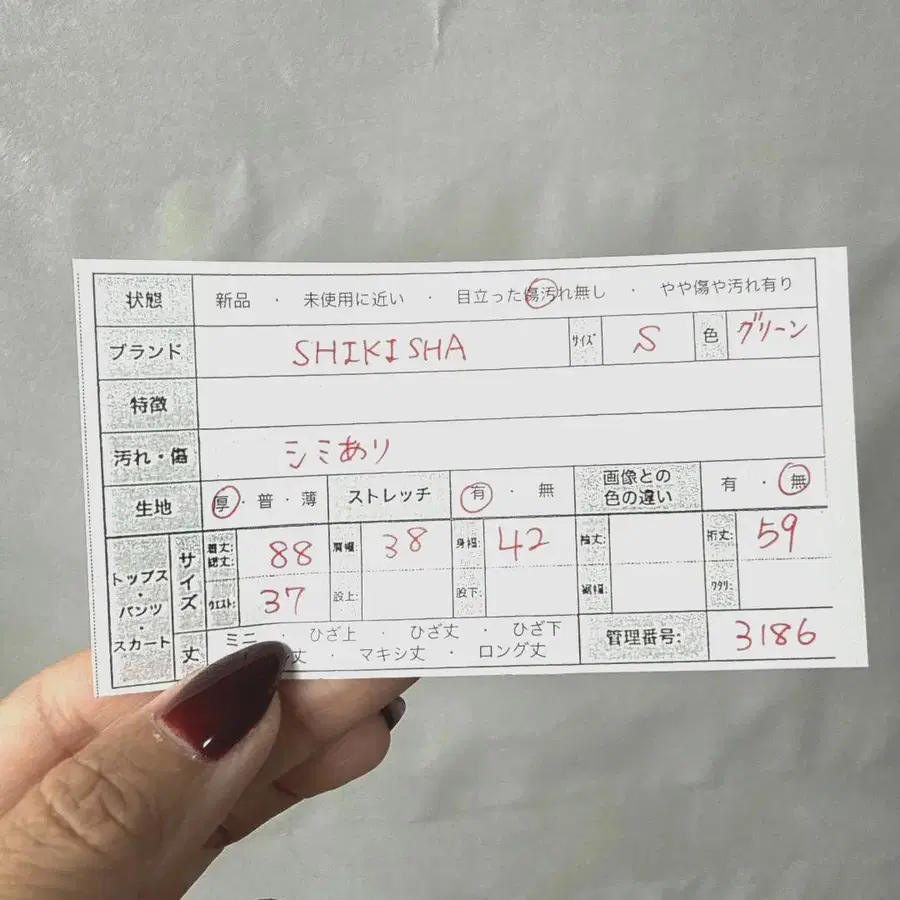 状態 新品 ・ 未使用に近い ・ 目立った傷汚れ無し ・ やや傷や汚れ有り
ブランド SHIKISHA サイズ S 色 グリーン
特徴
汚れ・傷 シミあり
生地 厚・普・薄 ストレッチ 有 ・ 無 画像との色の違い 有 ・ 無
トップス・パンツ・スカート サイズ 着丈: 総丈: 88 肩幅: 38 身幅: 42 袖丈: 裄丈: 59
ウエスト: 37 股上: 股下: 裾幅: ワタリ:
丈 ミニ ・ ひざ上 ・ ひざ丈 ・ ひざ下 管理番号: 3186
丈 ・ マキシ丈 ・ ロング丈